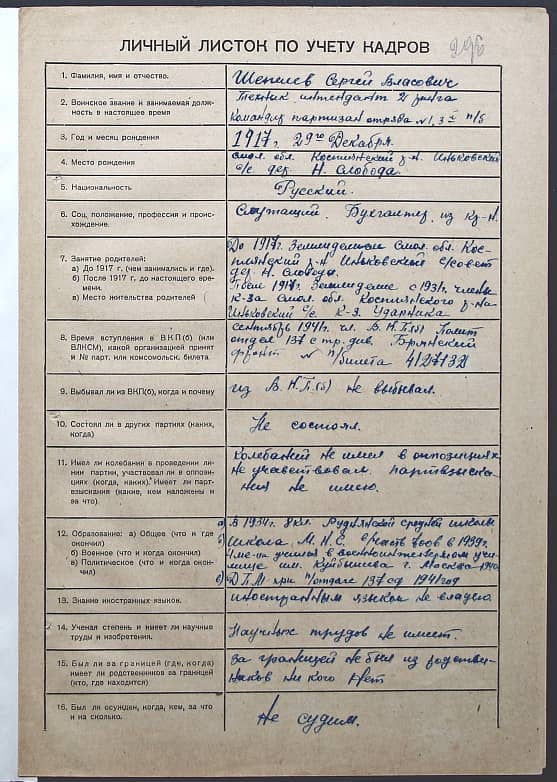 296
ЛИЧНЫЙ ЛИСТОК ПО УЧЕТУ КАДРОВ
1. Фамилия, имя и отчество.
Шепелев Сергей Власович
2. Воинское звание и занимаемая долж-
ность в настоящее время
Техник интендант 2 ранга
Командир партизан отряда №1, 3й п/б
3. Год и месяц рождения
1917г. 29го Декабря.
4. Место рождения
Смол. обл. Касплянский р-н. Иньковский
с/с дер. Н. Слобода.
5. Национальность
Русский.
6. Соц. положение, профессия и проис-
хождение.
Служащий. Бухгалтер, из кр-н.
7. Занятие родителей:
а) До 1917 г. (чем занимались и где).
б) После 1917 г. до настоящего вре-
мени.
в) Место жительства родителей
До 1917г. Земледелием Смол. обл. Кас-
плянский р-н Иньковский с/совет
дер. Н. Слобода.
После 1917г. Земледелие с 1931г. члены
к-за Смол. обл. Касплянского р-на
Иньковский с/с к-з. Ударника
8. Время вступления в ВКП(б) (или
ВЛКСМ), какой организацией принят
и № парт. или комсомольск. билета
сентябрь 1941г. чл. В.К.П.(б) Полит
отдел 137 стр. див. Брянский
фронт № п/билета 4127132
9. Выбывал ли из ВКП(б), когда и почему
из В.К.П.(б) не выбывал.
10. Состоял ли в других партиях (каких,
когда)
Не состоял.
11. Имел ли колебания в проведении ли-
нии партии, участвовал ли в оппози-
циях (когда, каких). Имеет ли парт-
взыскания (какие, кем наложены и
за что).
Колебаний не имел в оппозициях
не учавствовал. партвзыска-
ния не имею.
12. Образование: а) Общее (что и где
окончил)
б) Военное (что и когда окончил)
в) Политическое (что и когда окон-
чил)
а) В 1934г. 8 кл. Руднянской средней школы
б) Школа М.Н.С. в 1939г.
учился в военноинтендантском учи-
лище им. Куйбышева г. Москва 1940
в) Д.П.М при п/отделе 137 сд 1941год
13. Знание иностранных языков.
иностранным языком не владею
14. Ученая степень и имеет ли научные
труды и изобретения.
Научных трудов не имеет.
15. Был ли за границей (где, когда)
имеет ли родственников за границей
(кто, где находится)
За границей не был из родствен-
ников ни кого нет
16. Был ли осужден, когда, кем, за что
и на сколько.
Не судим.